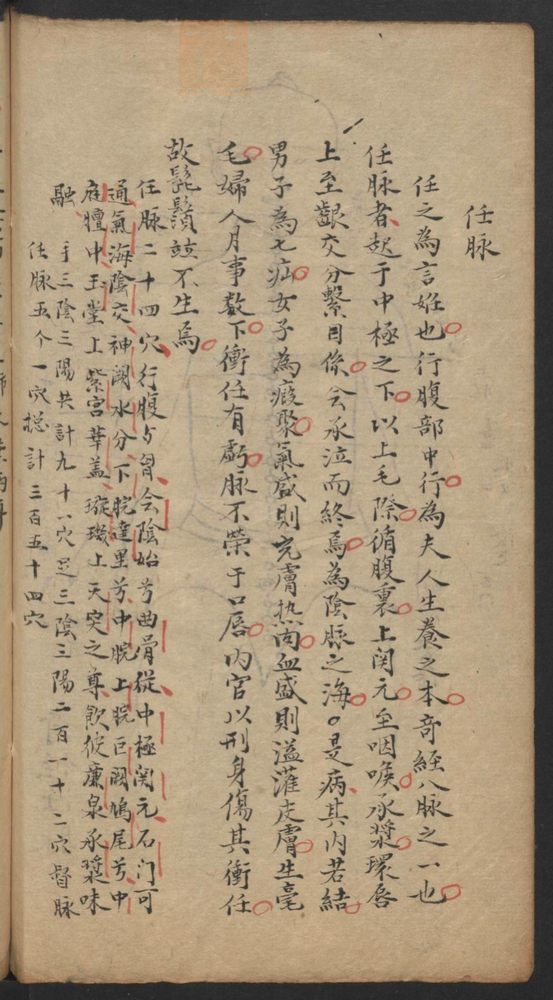 任脉
任之為言妊也行腹部中行為夫人生養之本奇經八脉之一也
任脉者起于中極之下以上毛際循腹裏上関元至咽喉承漿環唇
上至齦交分繫目係会承泣而終焉為陰脉之海是病其内若結
男子為七疝女子為瘕聚氣盛則充膚热肉血盛則溢灌皮膚生毫
毛婦人月事数下衝任有虧脉不荣于口唇内官以刑身傷其衝任
故髭鬚竝不生焉
任脉二十四穴行腹与胷会陰始兮曲骨従中極関元石门可
通氣海陰交神阙水分下脘建里兮中脘上脘巨阙鳩尾兮中
庭膻中玉堂上紫宮華盖璇璣上天突之尊飲彼廉泉承漿味
融手三陰三陽共計九十一穴足三陰三陽二百一十二穴督脉
任脉五个一穴捴計三百五十四穴